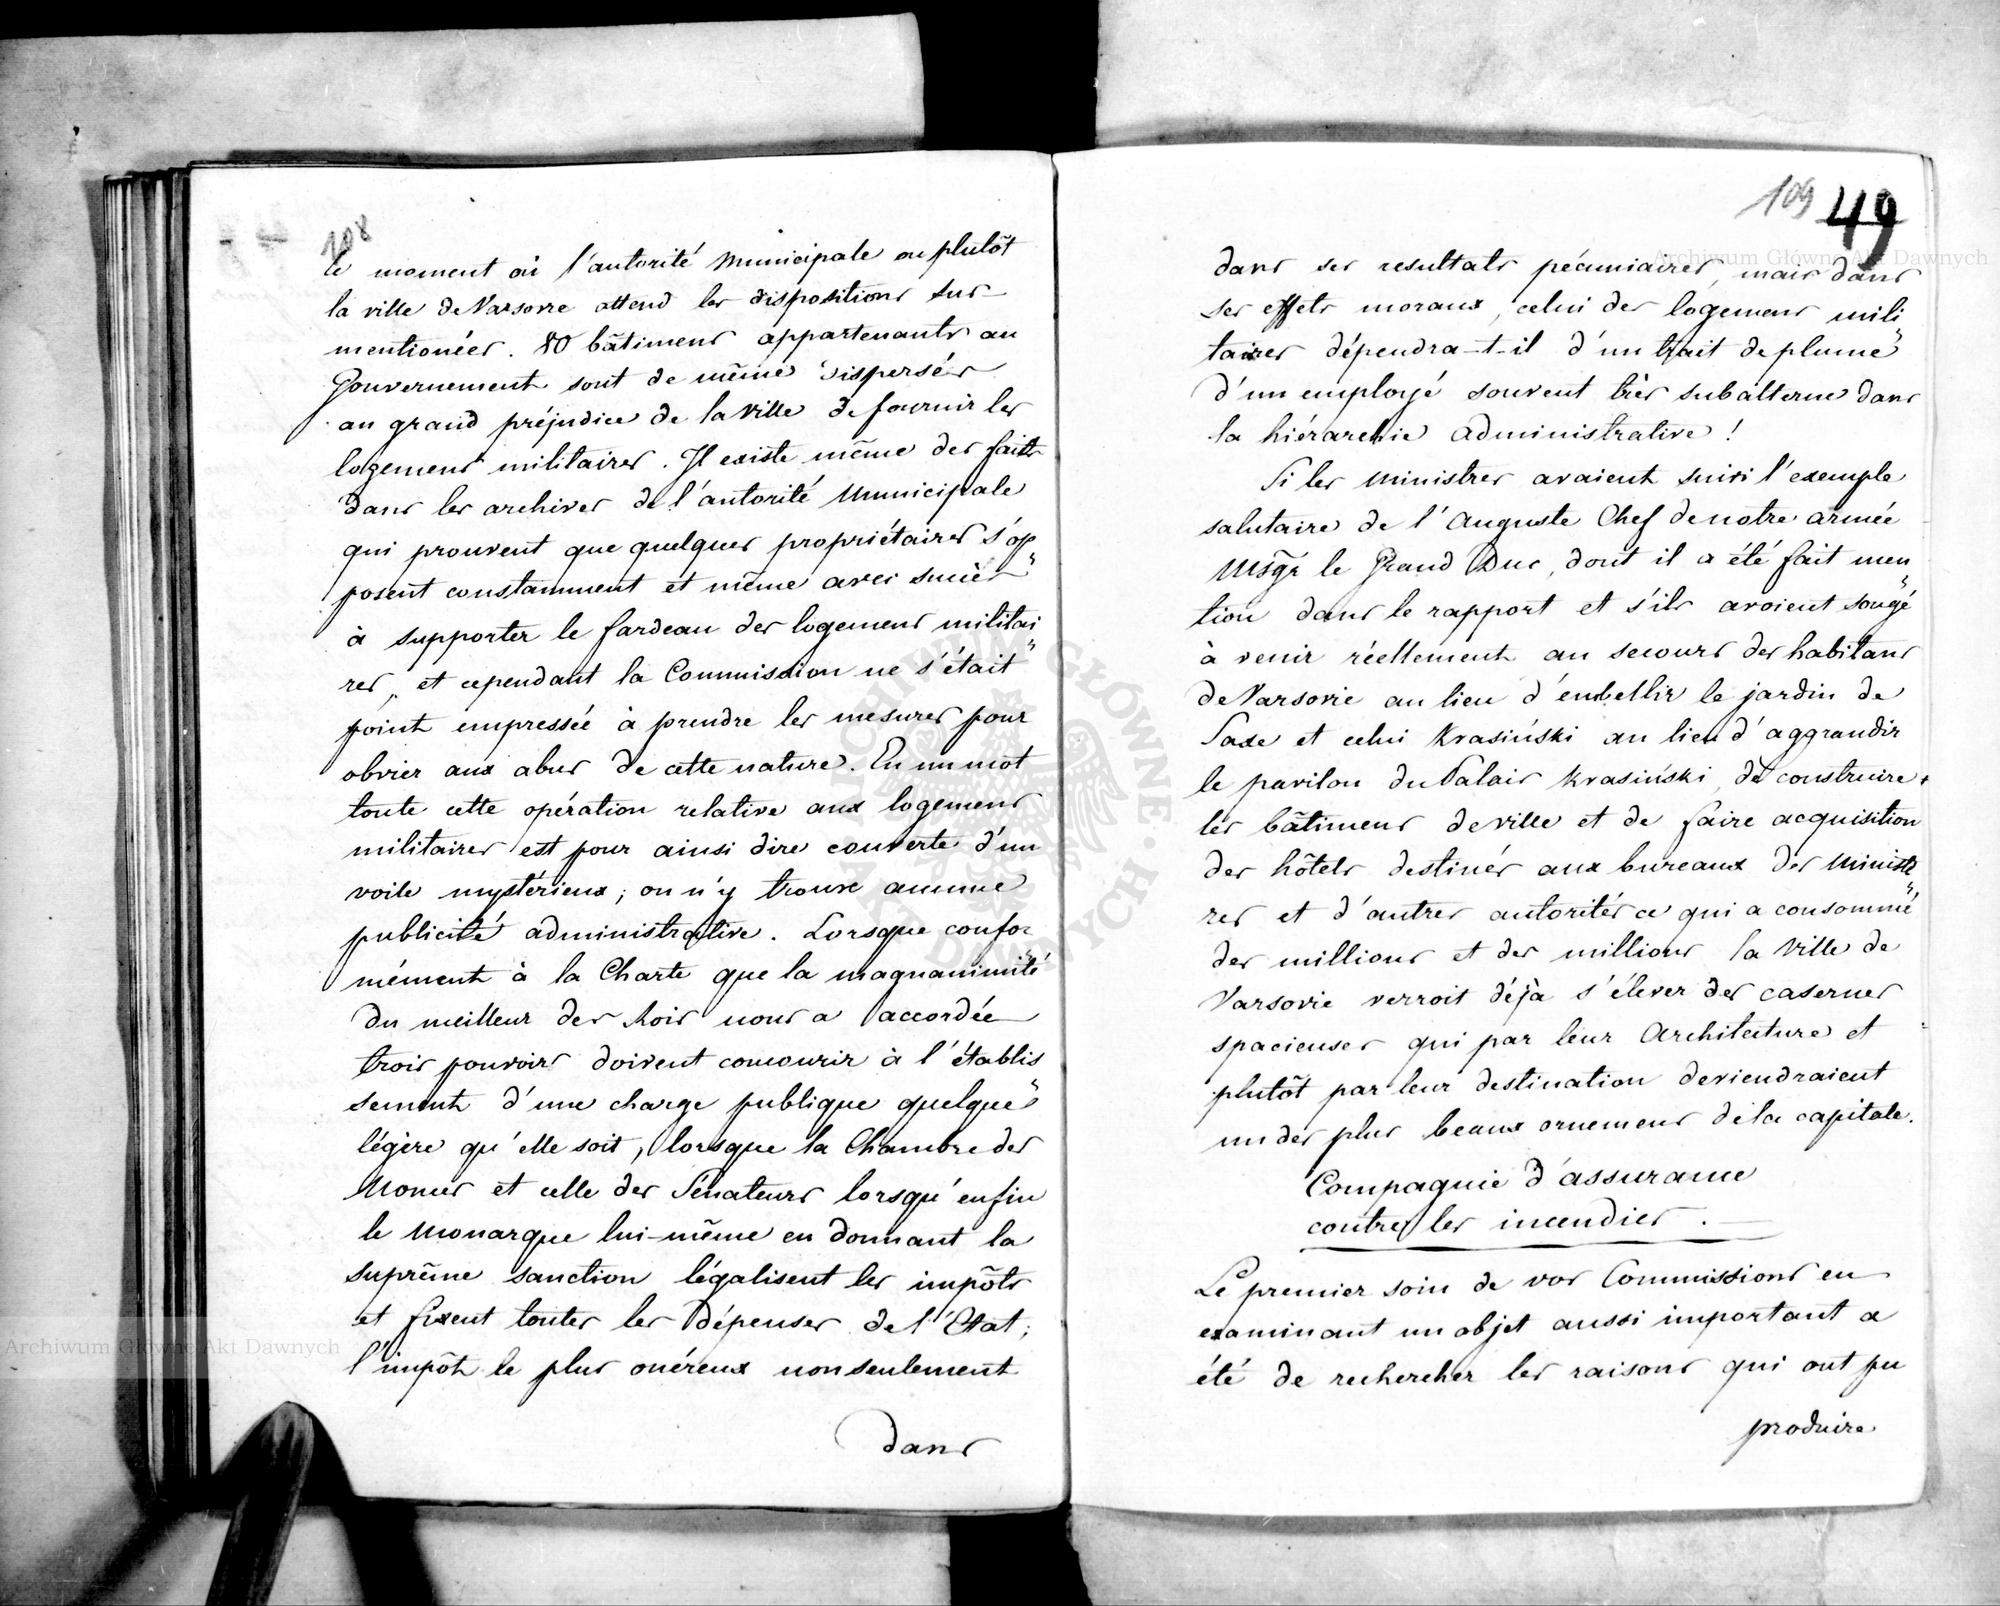 108
le moment où l'autorité Municipale ou plutôt
la ville de Varsovie attend les dispositions sus-
mentionées. 80 bâtimens appartenants au
Gouvernement sont de même dispersés
au grand préjudice de la Ville de fournir les
logemens militaires. Il existe même des faits
dans les archives de l'autorité Municipale
qui prouvent que quelques propriétaires s'op
posent constamment et même avec succès
à supporter le fardeau des logemens militai
res, et cependant la Commission ne s'était
point empressée à prendre les mesures pour
obvier aux abus de cette nature. En un mot
toute cette opération relative aux logemens
militaires est pour ainsi dire couverte d'un
voile mystérieux; on n'y trouve aucune
publicité administrative. Lorsque confor
mément à la Charte que la magnanimité
du meilleur des Rois nous a accordée
trois pouvoirs doivent concourir à l'établis
sement d'une charge publique quelque
légère qu'elle soit, lorsque la Chambre des
Nonces et celle des Sénateurs lorsqu'enfin
le Monarque lui-même en donnant la
suprême sanction légalisent les impôts
et fixent toutes les dépenses de l'Etat;
l'impôt le plus onéreux nonseulement
dans
109 49
dans ses resultats pécuniaires, mais dans
ses effets moraux, celui des logemens mili
taires dépendra-t-il d'un trait de plume
d'un employé souvent très subalterne dans
la hiérarchie administrative!
Si les Ministres avaient suivi l'exemple
salutaire de l'Auguste Chef de notre armée
Msgr le Grand Duc, dont il a été fait men
tion dans le rapport et s'ils avoient songé
à venir réellement au secours des habitans
de Varsovie au lieu d'embellir le jardin de
Saxe et celui Krasiński au lieu d'aggrandir
le pavilon du Palais Krasiński, de construire
les bâtimens de ville et de faire acquisition
des hôtels destinés aux bureaux des Minist
res et d'autres autorités ce qui a consommé
des millions et des millions la Ville de
Varsovie verroit déjà s'élever des casernes
spacieuses qui par leur Architecture et
plutôt par leur destination deviendraient
un des plus beaux ornemens de la capitale.
Compagnie d'assurance
contre les incendies.
Le premier soin de vos Commissions en
examinant un objet aussi important a
été de rechercher les raisons qui ont pu
produire
Archiwum Główne Akt Dawnych
Archiwum Główne Akt Dawnych